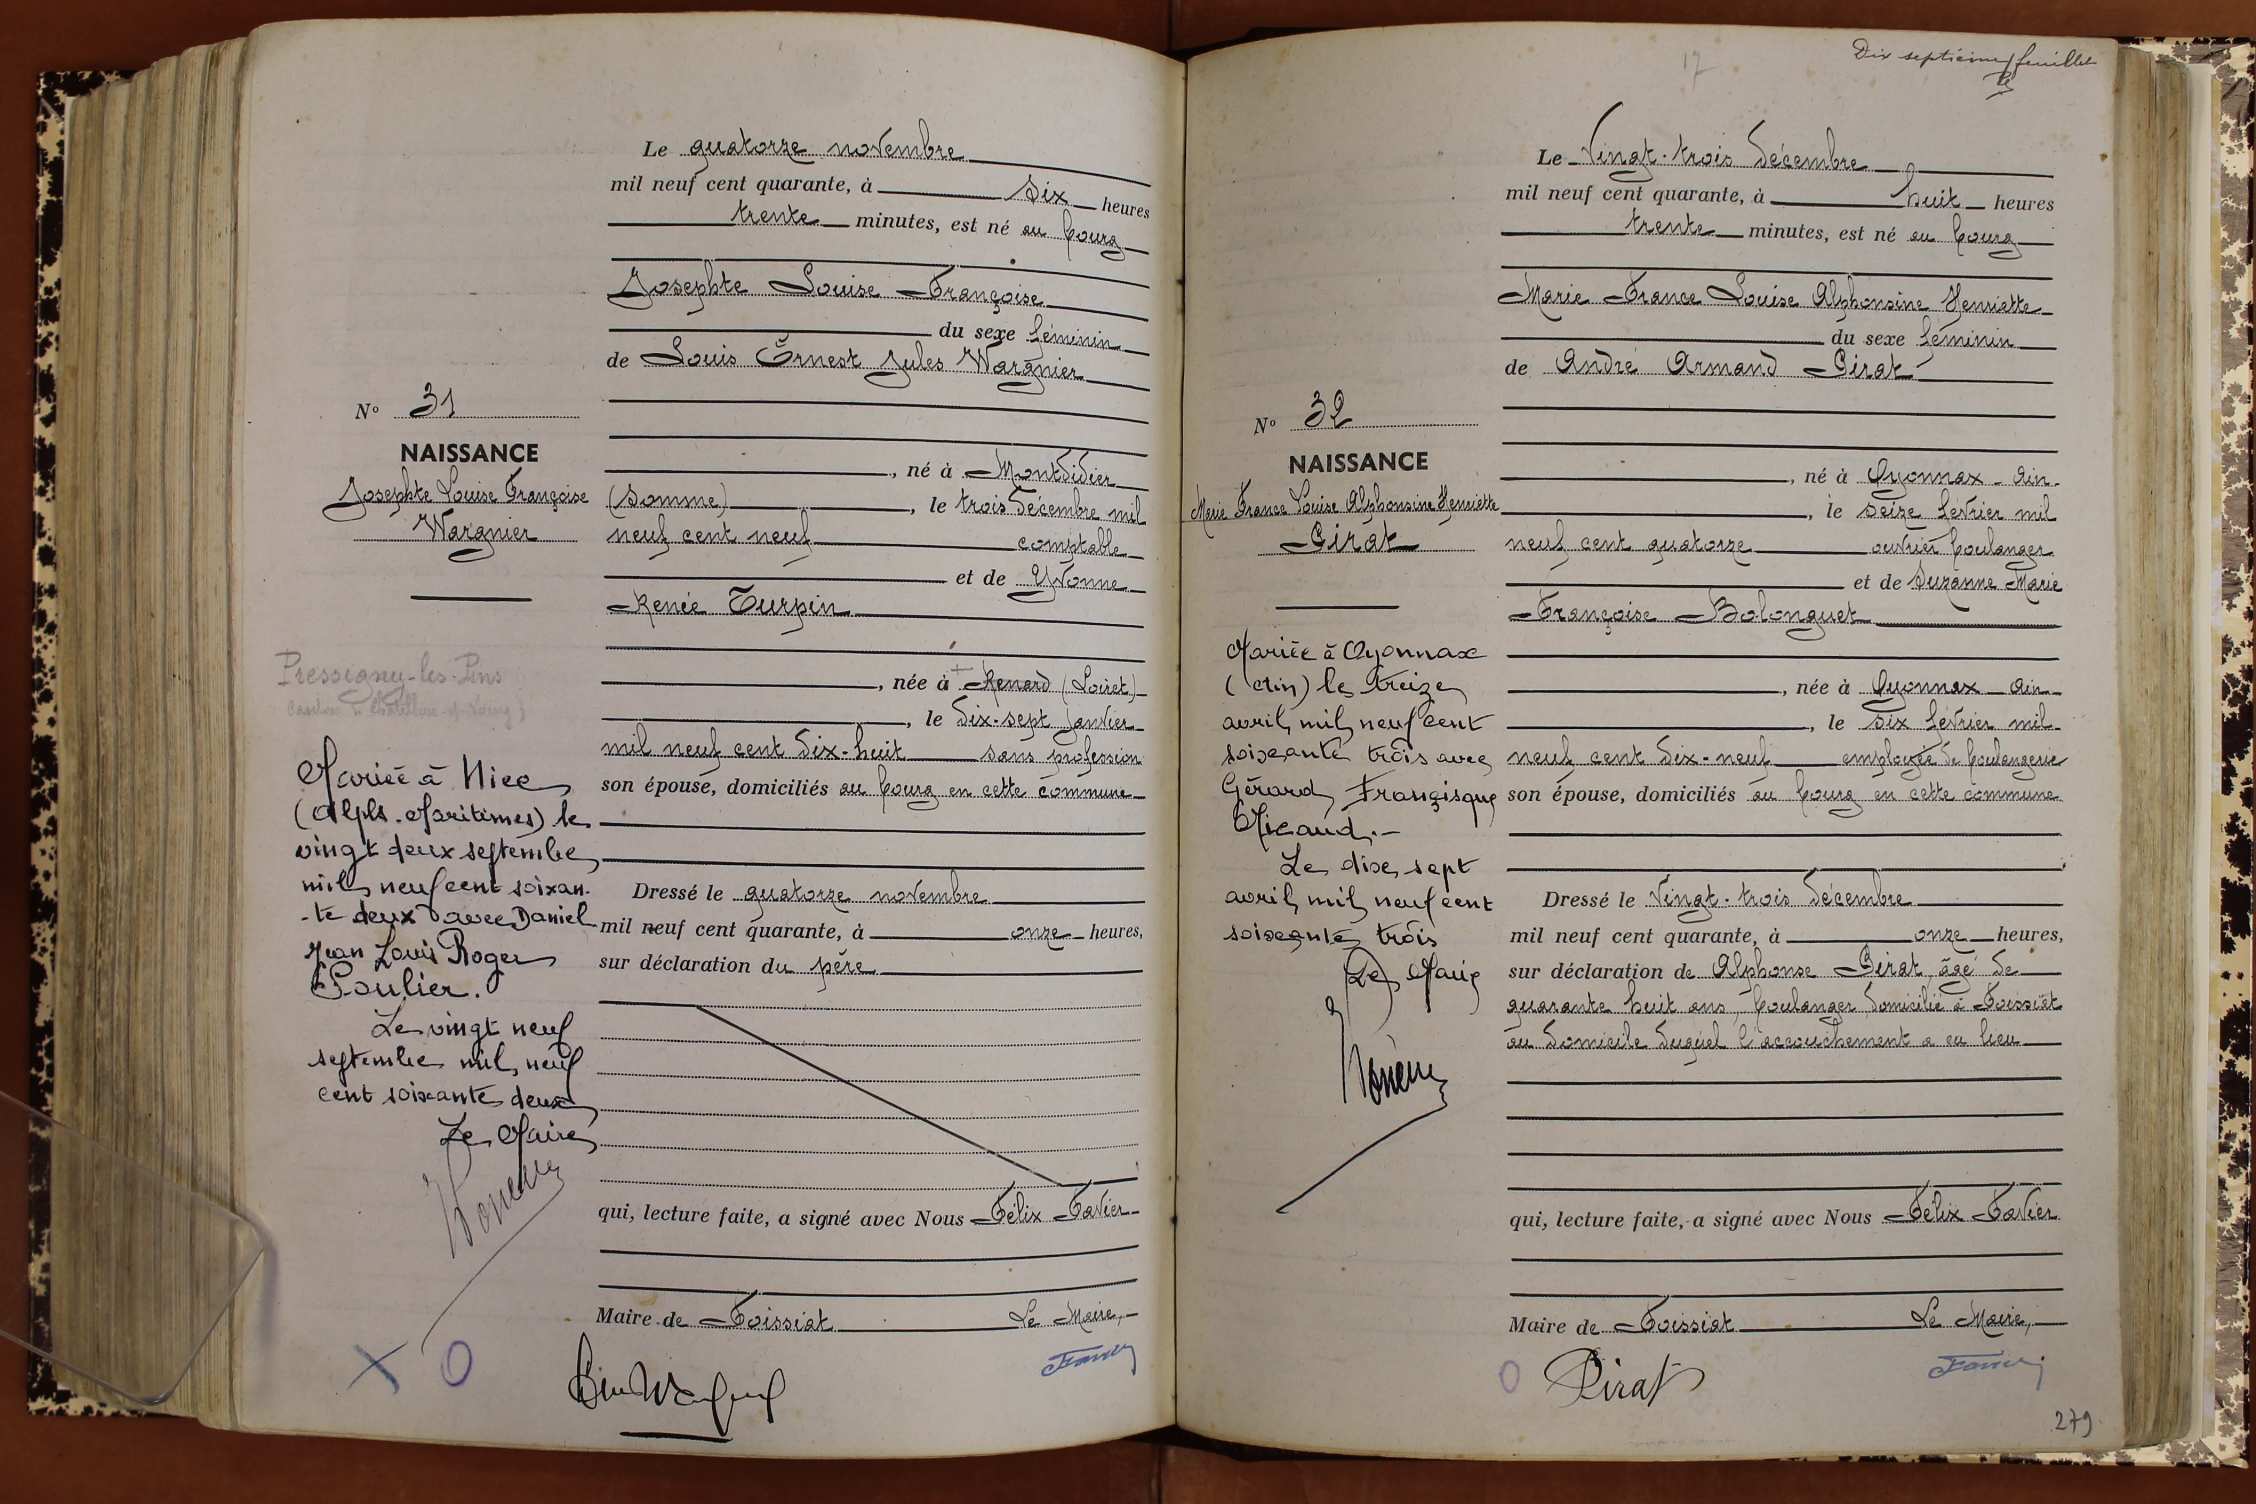 Le quatorze novembre
mil neuf cent quarante, à six heures
trente minutes, est né au bourg
Josephte Louise Françoise
du sexe féminin
de Louis Ernest Jules Wargnier
N° 31
NAISSANCE
Josephte Louise Françoise
Wargnier
, né à Montdidier
(Somme), le trois décembre mil
neuf cent neuf comptable
et de Yvonne
Renée Turpin
, née à + Renard (Loiret)
, le dix-sept janvier
mil neuf cent dix-huit sans profession
son épouse, domiciliés au bourg en cette commune
Pressigny-les-Pins
Mariée à Nice
(Alpes-Maritimes) le
vingt deux septembre
mil neuf cent soixan-
-te deux avec Daniel
Jean Louis Roger
Poulier.
Le vingt neuf
septembre mil neuf
cent soixante deux
Le Maire
Dressé le quatorze novembre
mil neuf cent quarante, à onze heures,
sur déclaration du père
qui, lecture faite, a signé avec Nous Félix Favier
Maire de Foissiat Le Maire,
X O
Dix septième feuillet
17
Le Vingt-trois décembre
mil neuf cent quarante, à huit heures
trente minutes, est né au bourg
Marie France Louise Alphonsine Henriette
du sexe féminin
de André Armand Pirat
N° 32
NAISSANCE
Marie France Louise Alphonsine Henriette
Pirat
, né à Oyonnax - Ain -
, le seize février mil
neuf cent quatorze ouvrier boulanger
et de Suzanne Marie
Françoise Bolonguet
, née à Oyonnax - Ain -
, le six février mil
neuf cent dix-neuf employée de boulangerie
son épouse, domiciliés au bourg en cette commune
Mariée à Oyonnax
(Ain) le treize
avril mil neuf cent
soixante trois avec
Gérard Françisque
Micaud.-
Le dix sept
avril mil neuf cent
soixante trois
Le Maire
Dressé le Vingt-trois décembre
mil neuf cent quarante, à onze heures,
sur déclaration de Alphonse Pirat, âgé de
quarante huit ans, boulanger, domicilié à Foissiat
au domicile duquel l'accouchement a eu lieu
qui, lecture faite, a signé avec Nous Félix Favier
Maire de Foissiat Le Maire,
O Pirat
279